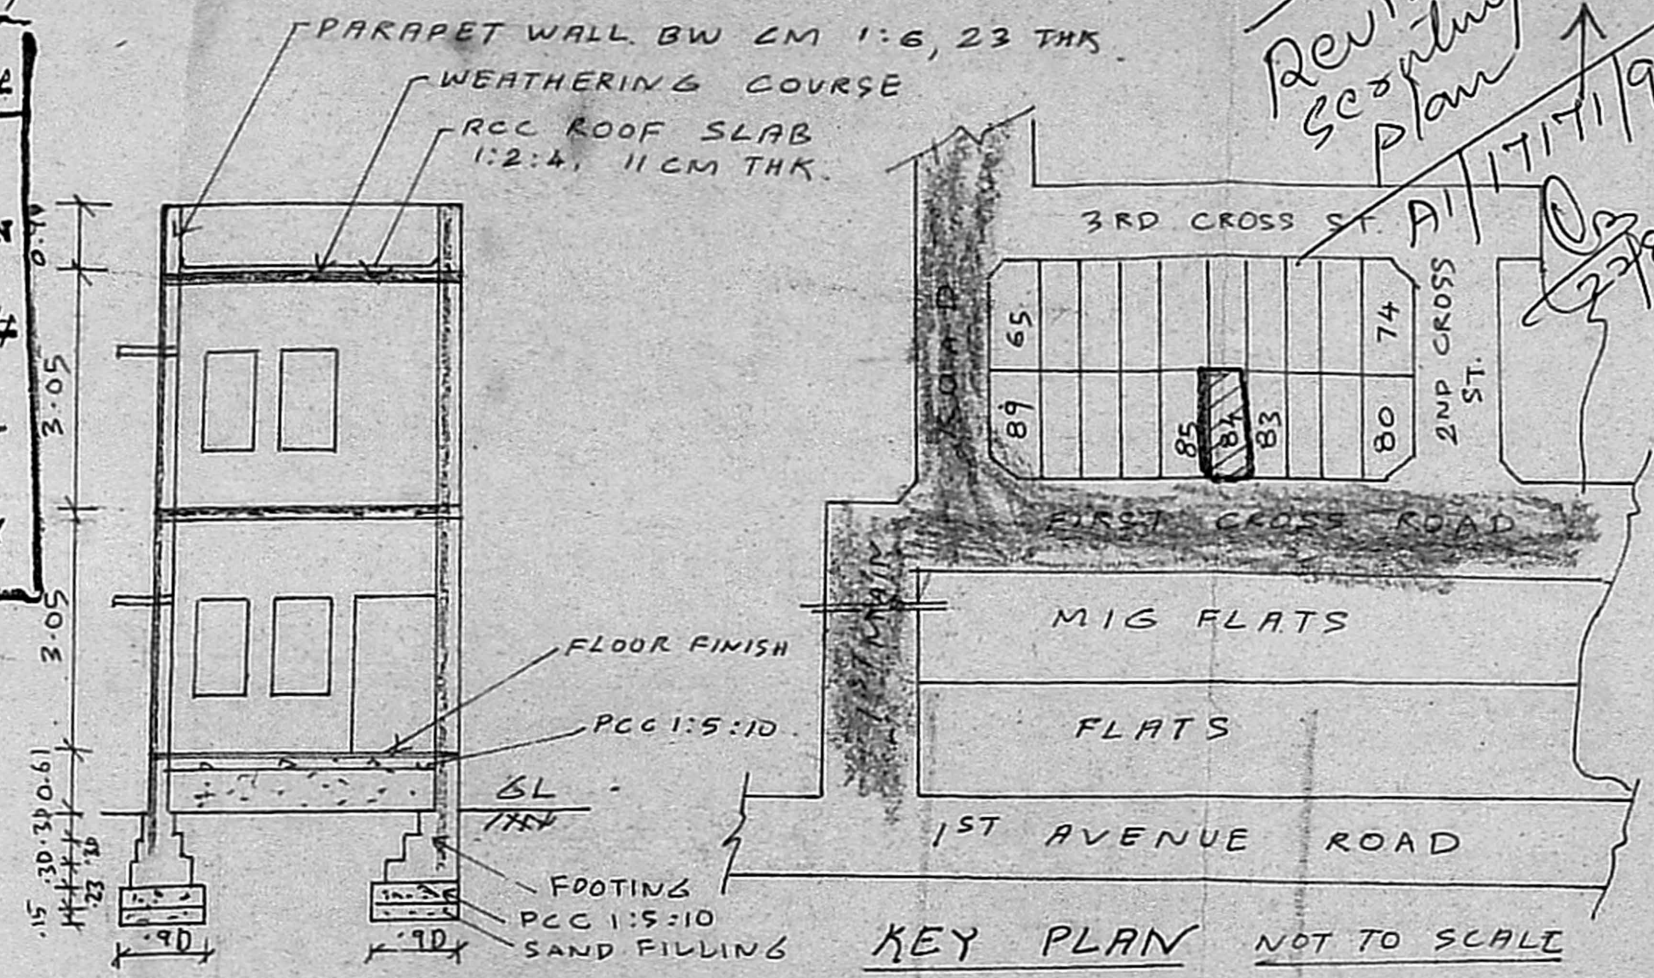 PARAPET WALL BW CM 1:6, 23 THK.
WEATHERING COURSE
RCC ROOF SLAB
1:2:4, 11 CM THK.
3.05
3.05
0.61
.30
.30
.30
.23
.15
FLOOR FINISH
PCC 1:5:10
GL
FOOTING
PCC 1:5:10
SAND FILLING
.90
.90
scrutiny
plan
A1/1717/9
3RD CROSS ST.
ROAD
65
74
89
85
84
83
80
2ND CROSS
ST.
FIRST CROSS ROAD
1ST MAIN
MIG FLATS
FLATS
1ST AVENUE ROAD
KEY PLAN
NOT TO SCALE